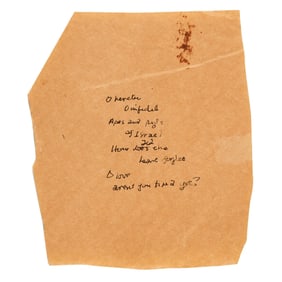 O heretic
O infidel
Apes and pigs
of Israel
How does one
leave
O
aren't you tired yet?